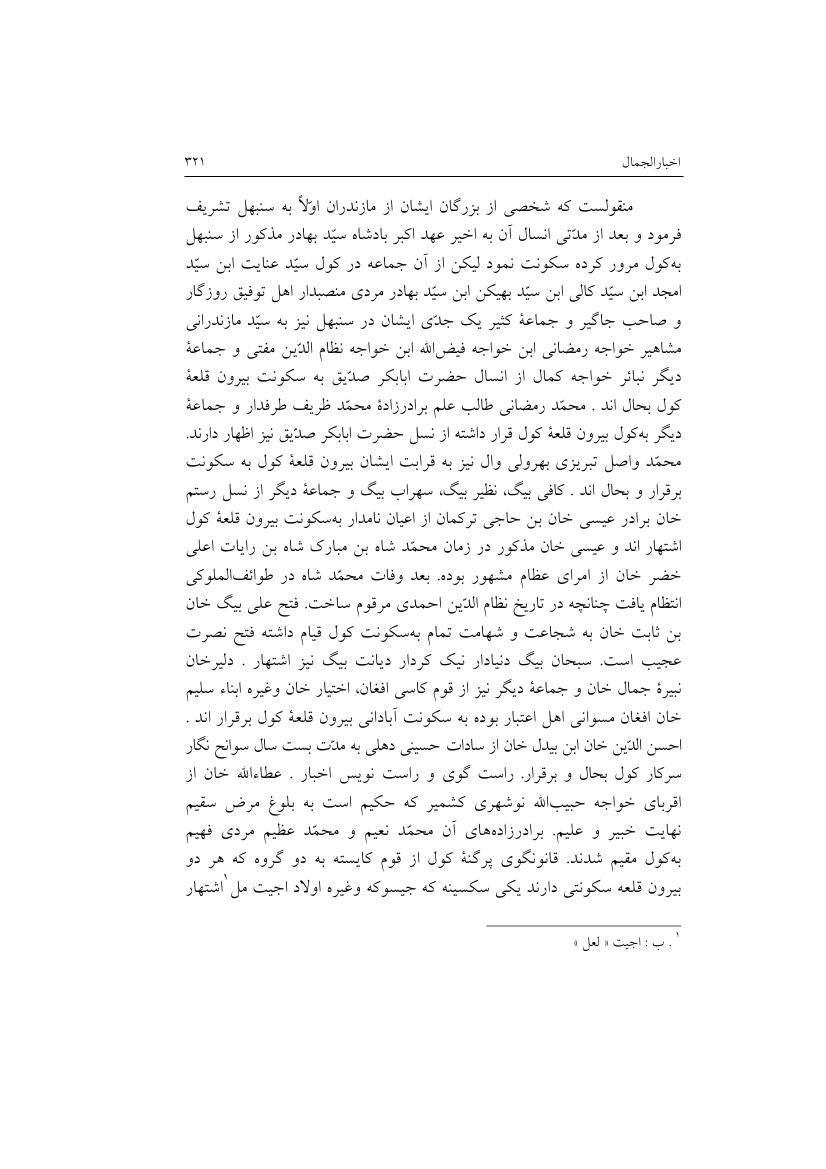 اخبارالجمال ۳۲۱
منقولست که شخصی از بزرگان ایشان از مازندران اوّلاً به سنبهل تشریف
فرمود و بعد از مدّتی انسال آن به اخیر عهد اکبر بادشاه سیّد بهادر مذکور از سنبهل
به‌کول مرور کرده سکونت نمود لیکن از آن جماعه در کول سیّد عنایت ابن سیّد
امجد ابن سیّد کالی ابن سیّد بهیکن ابن سیّد بهادر مردی منصبدار اهل توفیق روزگار
و صاحب جاگیر و جماعهٔ کثیر یک جدّی ایشان در سنبهل نیز به سیّد مازندرانی
مشاهیر خواجه رمضانی ابن خواجه فیض‌الله ابن خواجه نظام الدّین مفتی و جماعهٔ
دیگر نبائر خواجه کمال از انسال حضرت ابابکر صدّیق به سکونت بیرون قلعهٔ
کول بحال اند . محمّد رمضانی طالب علم برادرزادهٔ محمّد ظریف طرفدار و جماعهٔ
دیگر به‌کول بیرون قلعهٔ کول قرار داشته از نسل حضرت ابابکر صدّیق نیز اظهار دارند.
محمّد واصل تبریزی بهرولی وال نیز به قرابت ایشان بیرون قلعهٔ کول به سکونت
برقرار و بحال اند . کافی بیگ، نظیر بیگ، سهراب بیگ و جماعهٔ دیگر از نسل رستم
خان برادر عیسی خان بن حاجی ترکمان از اعیان نامدار به‌سکونت بیرون قلعهٔ کول
اشتهار اند و عیسی خان مذکور در زمان محمّد شاه بن مبارک شاه بن رایات اعلی
خضر خان از امرای عظام مشهور بوده. بعد وفات محمّد شاه در طوائف‌الملوکی
انتظام یافت چنانچه در تاریخ نظام الدّین احمدی مرقوم ساخت. فتح علی بیگ خان
بن ثابت خان به شجاعت و شهامت تمام به‌سکونت کول قیام داشته فتح نصرت
عجیب است. سبحان بیگ دنیادار نیک کردار دیانت بیگ نیز اشتهار . دلیرخان
نبیرهٔ جمال خان و جماعهٔ دیگر نیز از قوم کاسی افغان، اختیار خان وغیره ابناء سلیم
خان افغان مسوانی اهل اعتبار بوده به سکونت آبادانی بیرون قلعهٔ کول برقرار اند .
احسن الدّین خان ابن بیدل خان از سادات حسینی دهلی به مدّت بست سال سوانح نگار
سرکار کول بحال و برقرار. راست گوی و راست نویس اخبار . عطاءالله خان از
اقربای خواجه حبیب‌الله نوشهری کشمیر که حکیم است به بلوغ مرض سقیم
نهایت خبیر و علیم. برادرزاده‌های آن محمّد نعیم و محمّد عظیم مردی فهیم
به‌کول مقیم شدند. قانونگوی پرگنهٔ کول از قوم کایسته به دو گروه که هر دو
بیرون قلعه سکونتی دارند یکی سکسینه که جیسوکه وغیره اولاد اجیت مل¹ اشتهار
¹ . ب : اجیت « لعل »